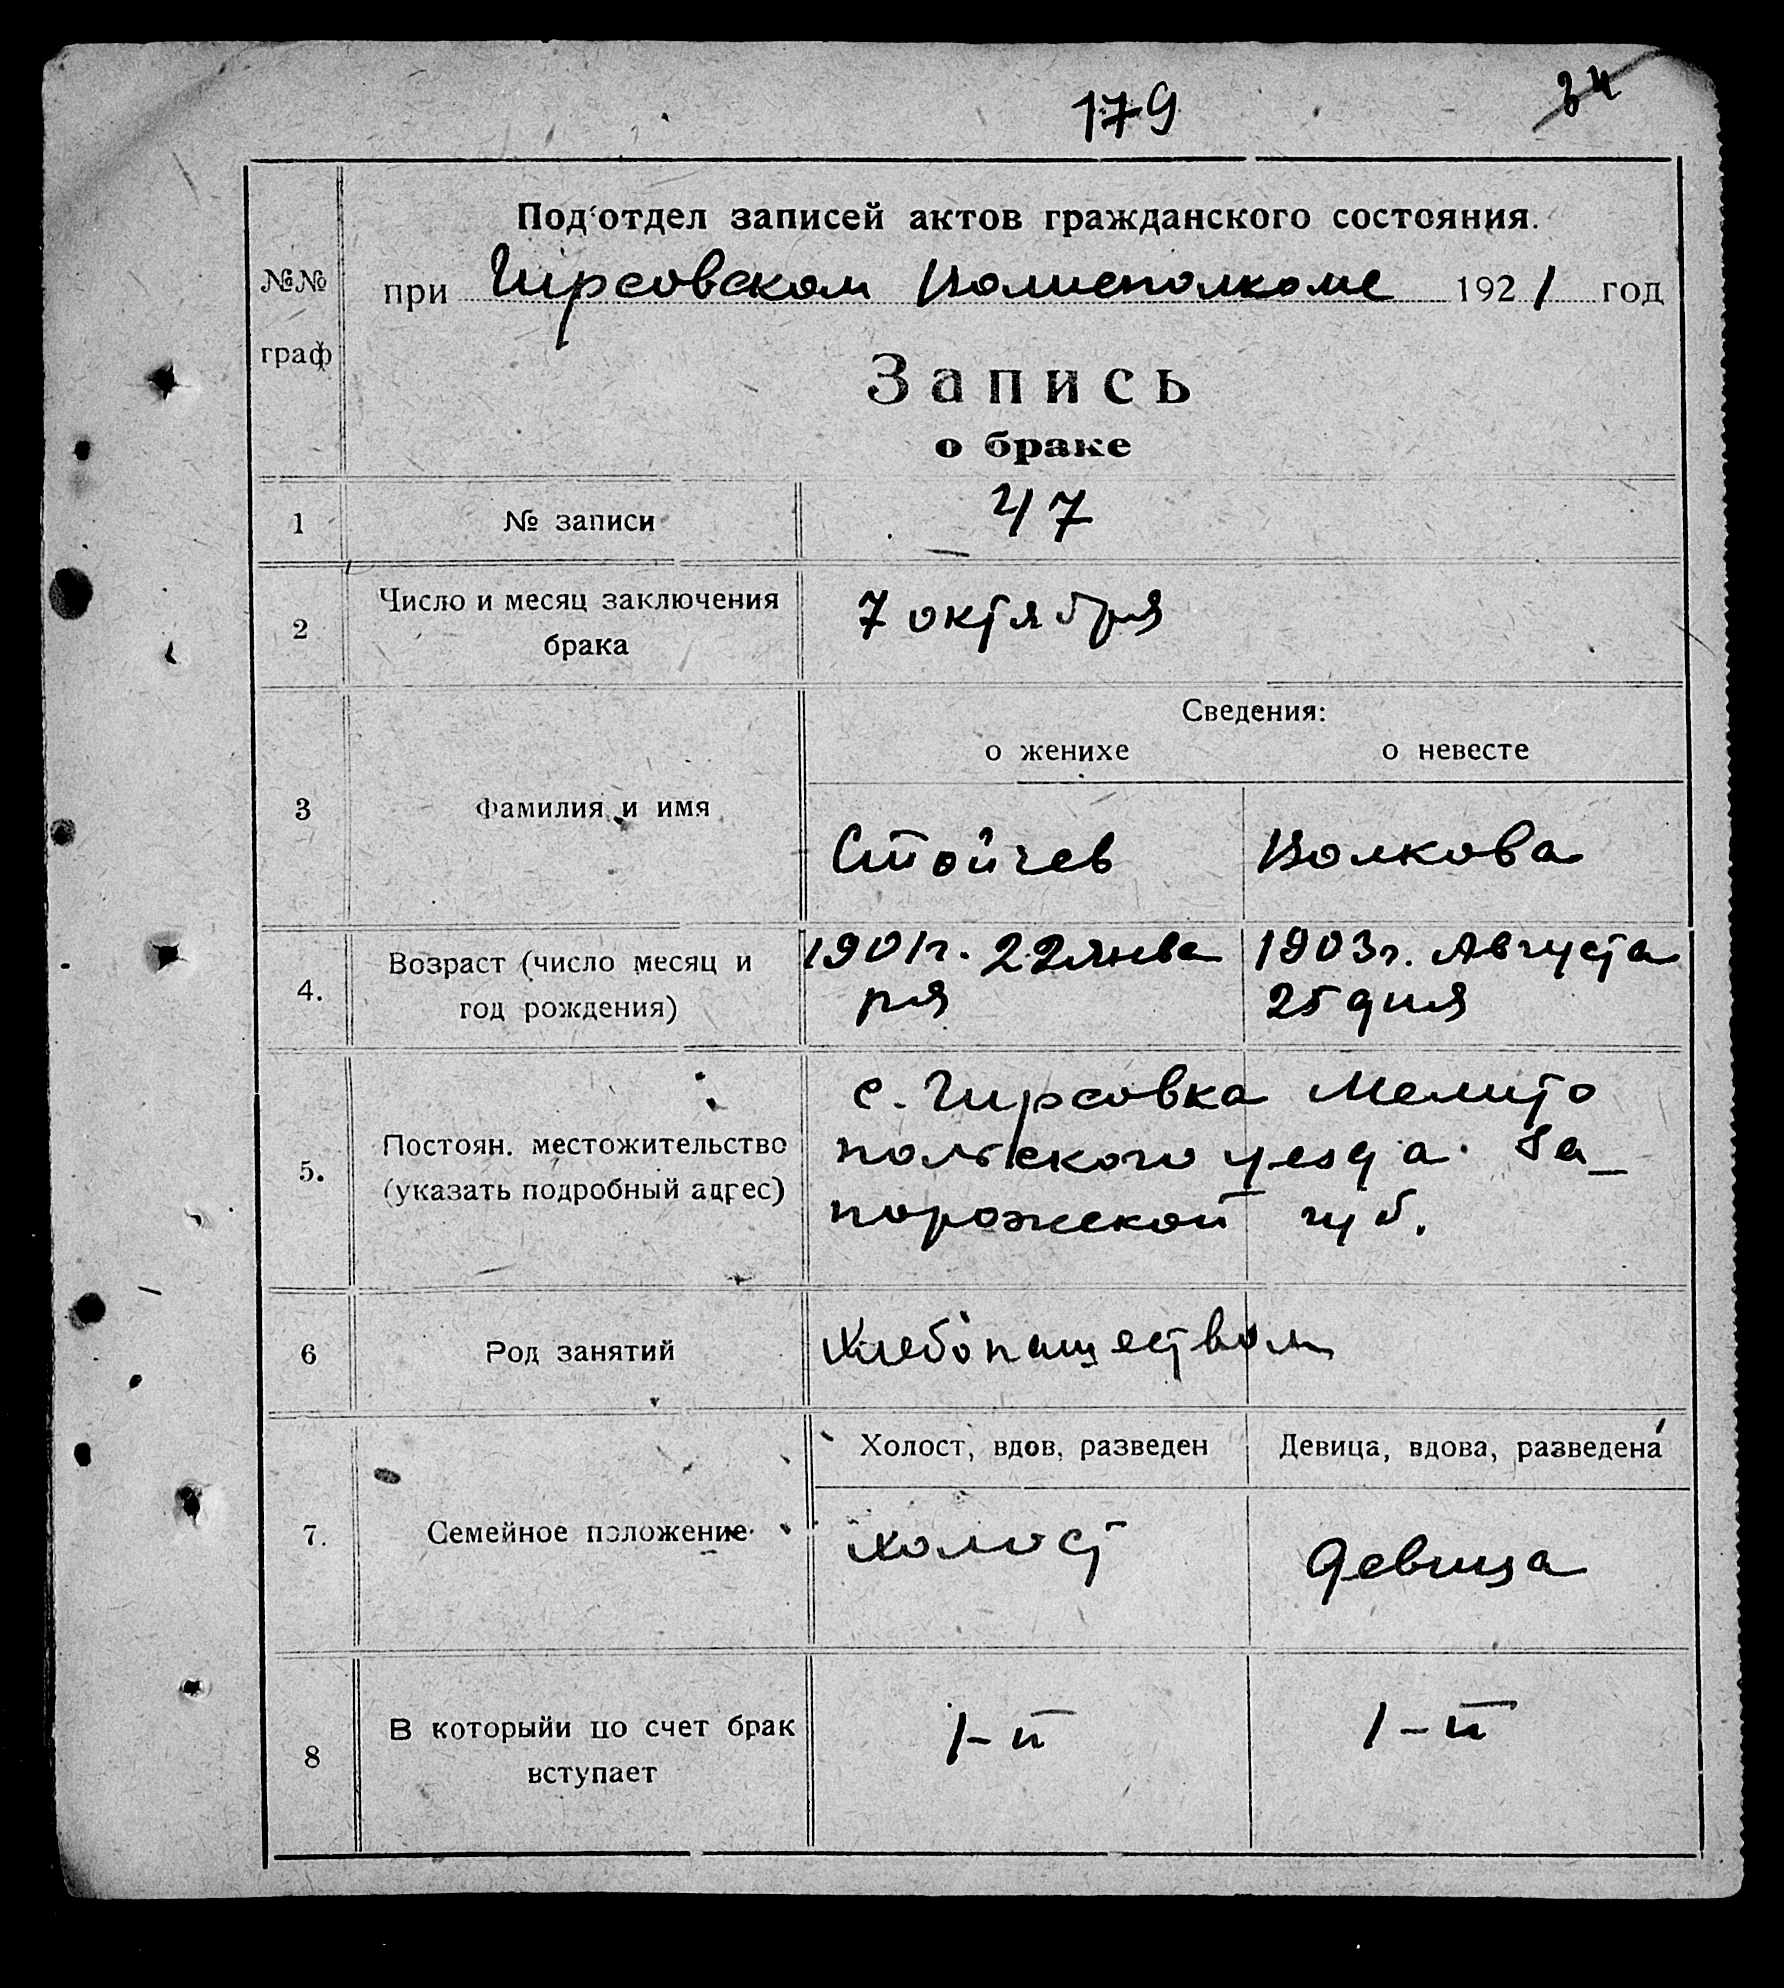 179
34
Под'отдел записей актов гражданского состояния.
№№
граф
при Гирсовском Волисполкоме 1921 год
Запись
о браке
1 № записи 47
2 Число и месяц заключения
брака
7 октября
Сведения:
о женихе о невесте
3 Фамилия и имя
Стойчев Волкова
4. Возраст (число месяц и
год рождения)
1901г. 22 Янва
ря
1903г. Августа
25 дня
5. Постоян. местожительство
(указать подробный адрес)
с. Гирсовка Мелито
польского уезда. За_
порожской губ.
6 Род занятий Хлебопашеством
Холост, вдов, разведен Девица, вдова, разведена
7. Семейное положение
холост девица
8 В которыйи по счет брак
вступает
1-й 1-й